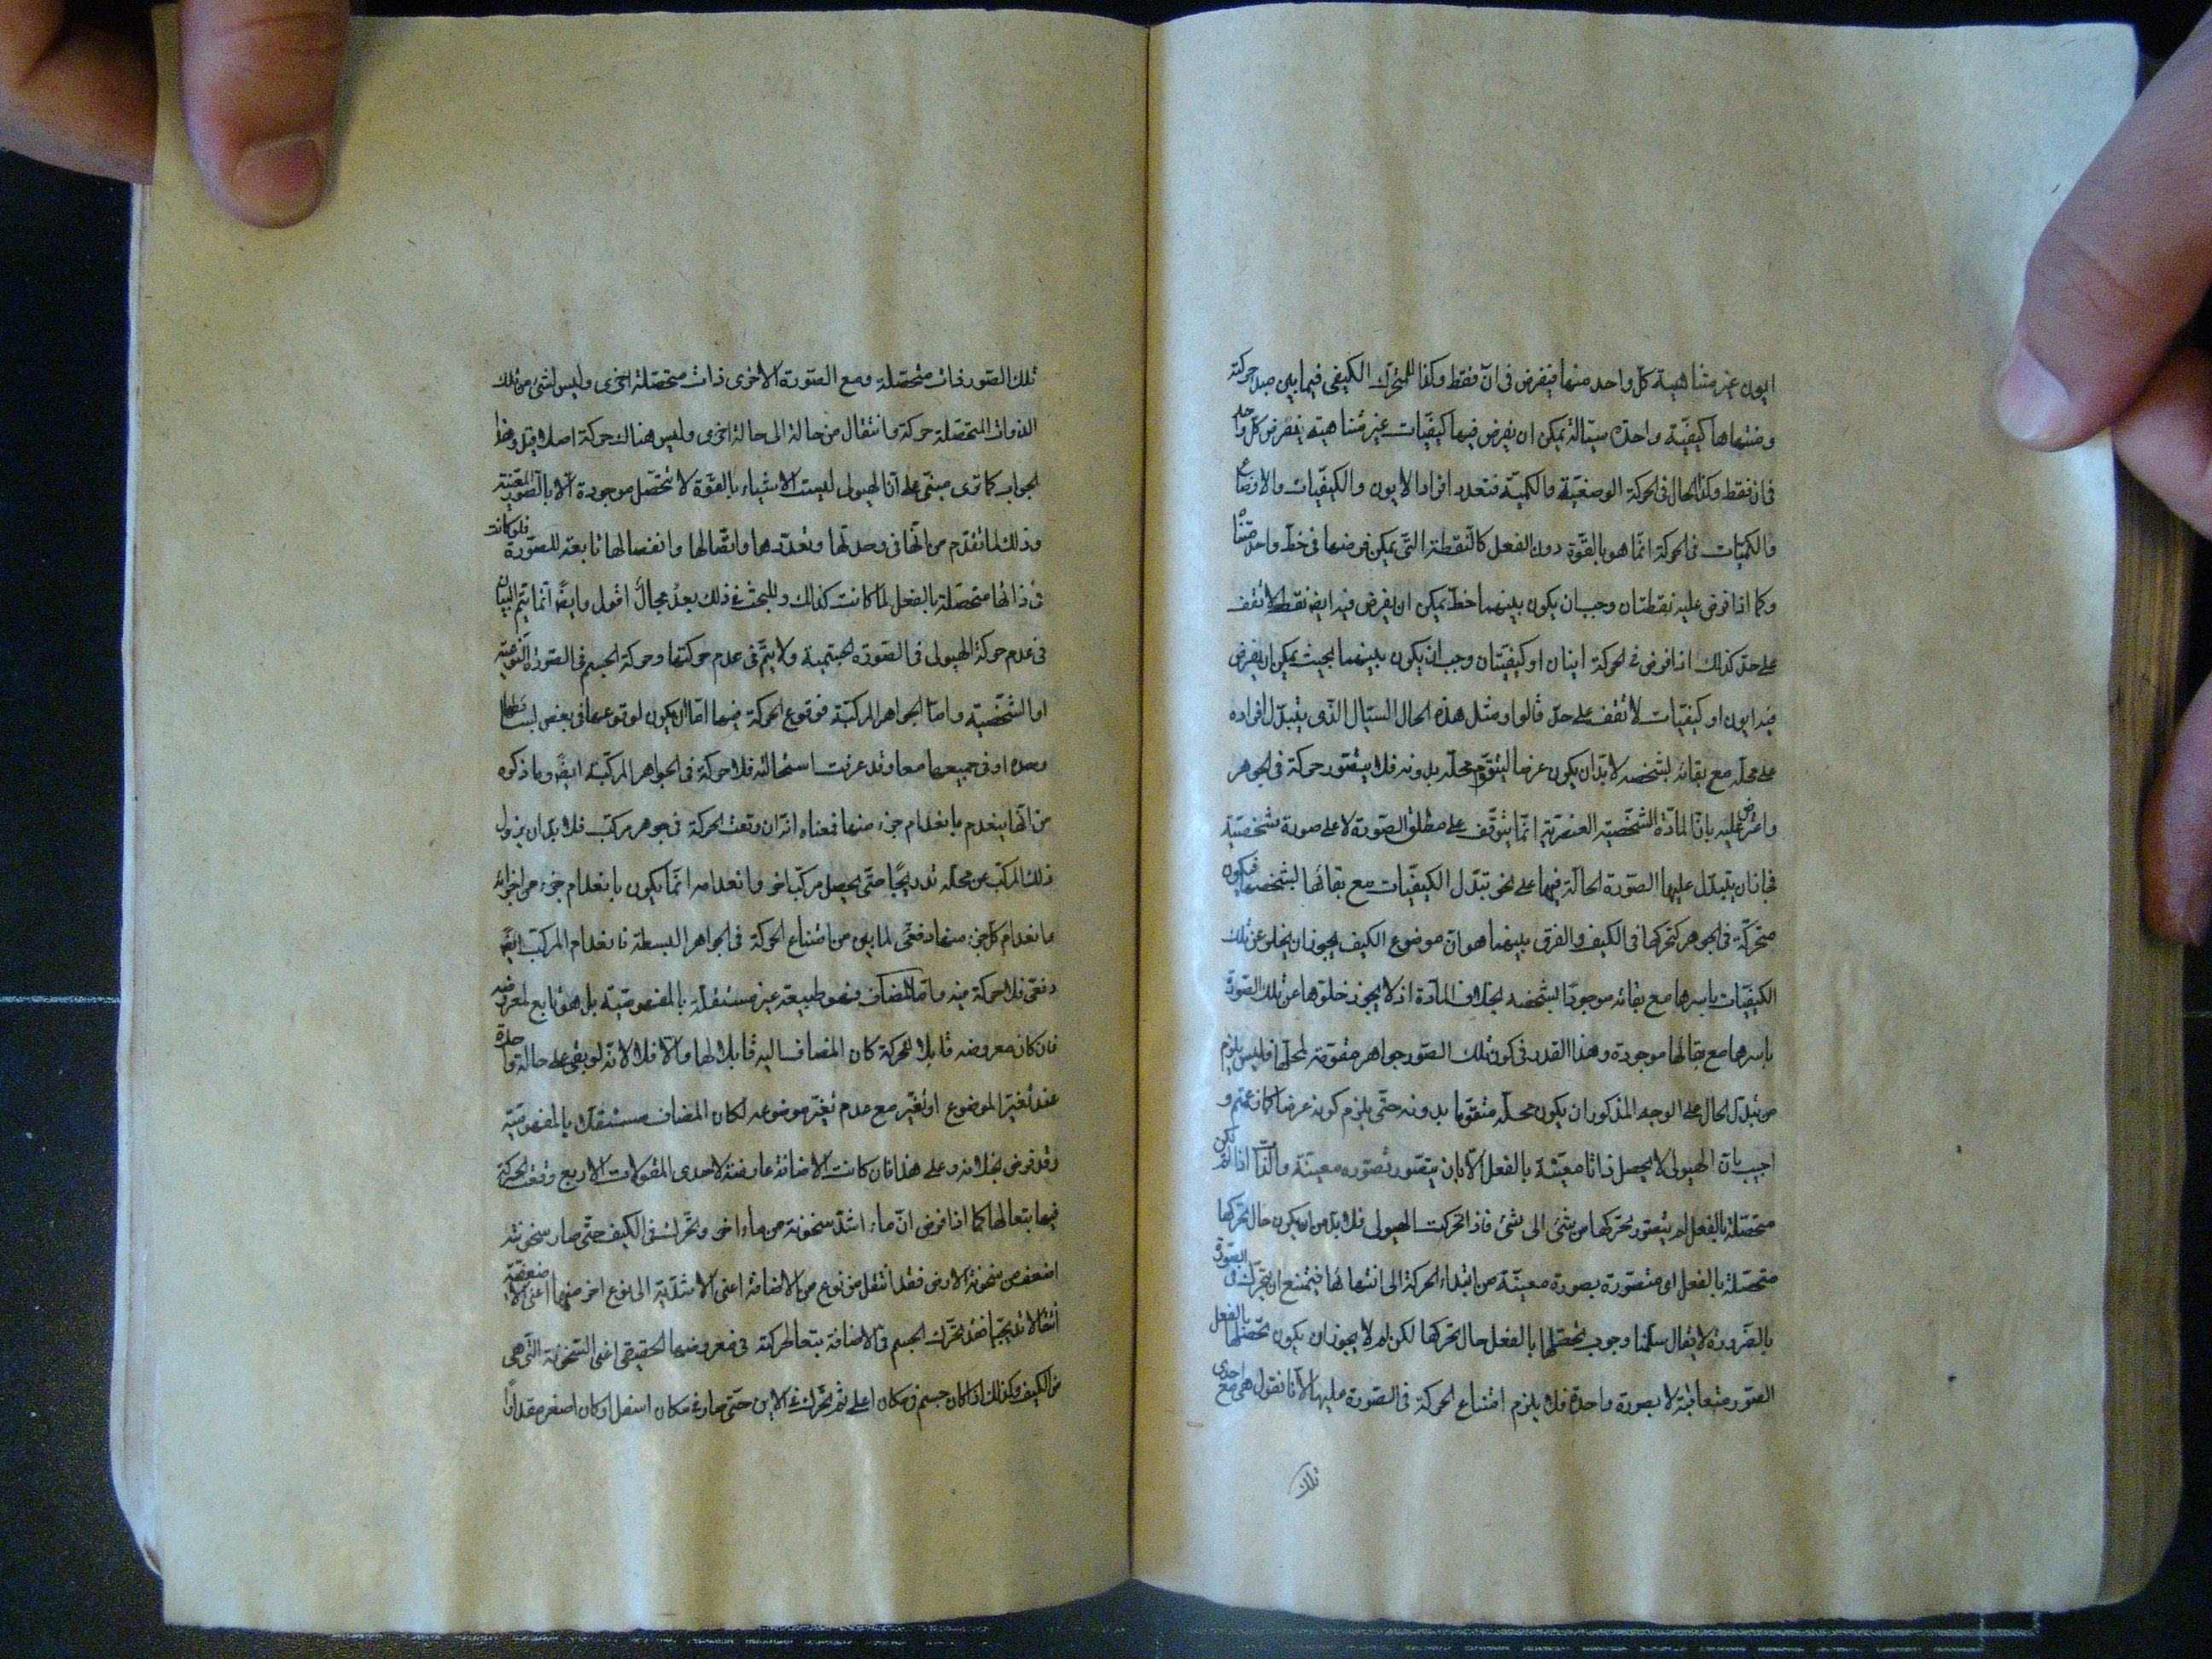 ايون غير متناهية كل واحد منها فيفرض فى ان فقط وكذا للمتحرك الكيفى فيما بين مبدا حركته
ومنتهاها كيفية واحدة سيالة يمكن ان يفرض فيها كيفيات غير متناهية يفرض كل واحد
فى ان فقط وكذا الحال فى الحركة الوضعية والكمية فتعدد افراد الايون والكيفيات والاوضاع
والكميات فى الحركة انما هو بالقوة دون الفعل كالنقطة التى يمكن فرضها فى خط واحد
وكما اذا فرض عليه نقطتان وجب ان يكون بينهما خط يمكن ان يفرض فيه ايضا نقط لا تقف
على حد كذلك اذا فرض فى الحركة اينان او كيفيتان وجب ان يكون بينهما بحيث يمكن ان يفرض
فيه ايون او كيفيات لا تقف على حد قالوا ومثل هذه الحال السيال الذى يتبدل افراده
على محله مع بقائه بشخصه لا بد ان يكون عرضا ليتقوم محله بدونه فلا يتصور حركة فى الجوهر
واعترض عليه بان المادة الشخصية العنصرية انما يتوقف على مطلق الصورة لا على صورة شخصية
فجاز ان يتبدل عليها الصورة الحالة فيها على نحو تبدل الكيفيات مع بقائها بشخصها فيكون
متحركة فى الجوهر كتحركها فى الكيف والفرق بينهما هو ان موضوع الكيف يجوز ان يخلو عن تلك
الكيفيات باسرها مع بقائه موجودا بشخصه بخلاف المادة اذ لا يجوز خلوها عن تلك الصورة
باسرها مع بقائها موجودة وهذا القدر فى كون تلك الصور جواهر مقومة لمحلها وليس يلزم
من تبدل الحال على الوجه المذكور ان يكون محله متقوما بدونه حتى يلزم كونه عرضا كما زعمتم و
اجيب بان الهيولى لا يحصل ذاتا معينة بالفعل الا بان يتصور بصورة معينة والذات اذا لم تكن
متحصلة بالفعل لم يتصور تحركها من شئ الى شئ فاذا تحركت الهيولى فلا بد من ان يكون حال تحركها
متحصلة بالفعل اى متصورة بصورة معينة من ابتداء الحركة الى انتهائها فيمتنع ان يتحرك فى الصورة
بالضرورة لا يقال سلمنا وجوب تحصلها بالفعل حال تحركها لكن لم لا يجوز ان يكون تحصلها بالفعل
الصور متعاقبة لا بصورة واحدة فلا يلزم امتناع الحركة فى الصورة عليها لانا نقول هى مع احدى
تلك
تلك الصور ذات متحصلة ومع الصورة الاخرى ذات متحصلة اخرى وليس لشئ من تلك
الذوات المتحصلة حركة وانتقال من حالة الى حالة اخرى وليس هناك حركة اصلا قيل وهذا
الجواب كما ترى مبنى على ان الهيولى ليست الا شيئا بالقوة لا تتحصل موجودة الا بالصور المعينة
وذلك لما تقدم من انها فى وحدتها وتعددها واتصالها وانفصالها تابعة للصورة فلو كانت
فى ذاتها متحصلة بالفعل لما كانت كذلك وللبحث فى ذلك بعد مجال اقول وايضا انما يتم البيان
فى عدم حركة الهيولى فى الصورة الجسمية ولا يتم فى عدم حركتها وحركة الجسم فى الصورة النوعية
او الشخصية واما الجواهر المركبة فوقوع الحركة فيها اما ان يكون لوقوعها فى بعض بسائطها
وحده او فى جميعها معا وقد عرفت استحالته فلا حركة فى الجواهر المركبة ايضا وما ذكره
من انها ينعدم بانعدام جزء منها فمعناه انه ان وقعت الحركة فى جوهر مركب فلا بد ان يزول
ذلك المركب عن محله تدريجا حتى يحصل مركب اخر وانعدامه انما يكون بانعدام جزء من اجزائه
وانعدام كل جزء منها دفعى لما بين من امتناع الحركة فى الجواهر البسيطة فانعدام المركب ايضا
دفعى فلا حركة فيه واما المضاف فهو طبيعة غير مستقلة بالمفهومية بل هو تابع لمعروضه
فان كان معروضه قابلا للحركة كان المضاف اليه قابلا لها والا فلا لانه لو بقى على حالة واحدة
عند تغير الموضوع او تغير مع عدم تغير موضوعه لكان المضاف مستقلا بالمفهومية
وقد فرض بخلافه وعلى هذا فان كانت الاضافة عارضة لاحدى المقولات الاربع وقعت الحركة
فيها بتعالها كما اذا فرض ان ماء اشد سخونة من ماء اخر وتحرك فى الكيف حتى صار سخونته
اضعف من سخونة الاخر فقد انتقل من نوع من الاضافة اعنى الاشدية الى نوع اخر منها اعنى الاضعفية
انتقالا تدريجيا فقد تحرك الجسم فى الاضافة بتعا لحركته فى معروضها الحقيقى اعنى السخونة التى هى
من الكيف وكذلك اذا كان جسم فى مكان اعلى ثم تحرك فى الاين حتى صار فى مكان اسفل او كان اصغر مقدارا